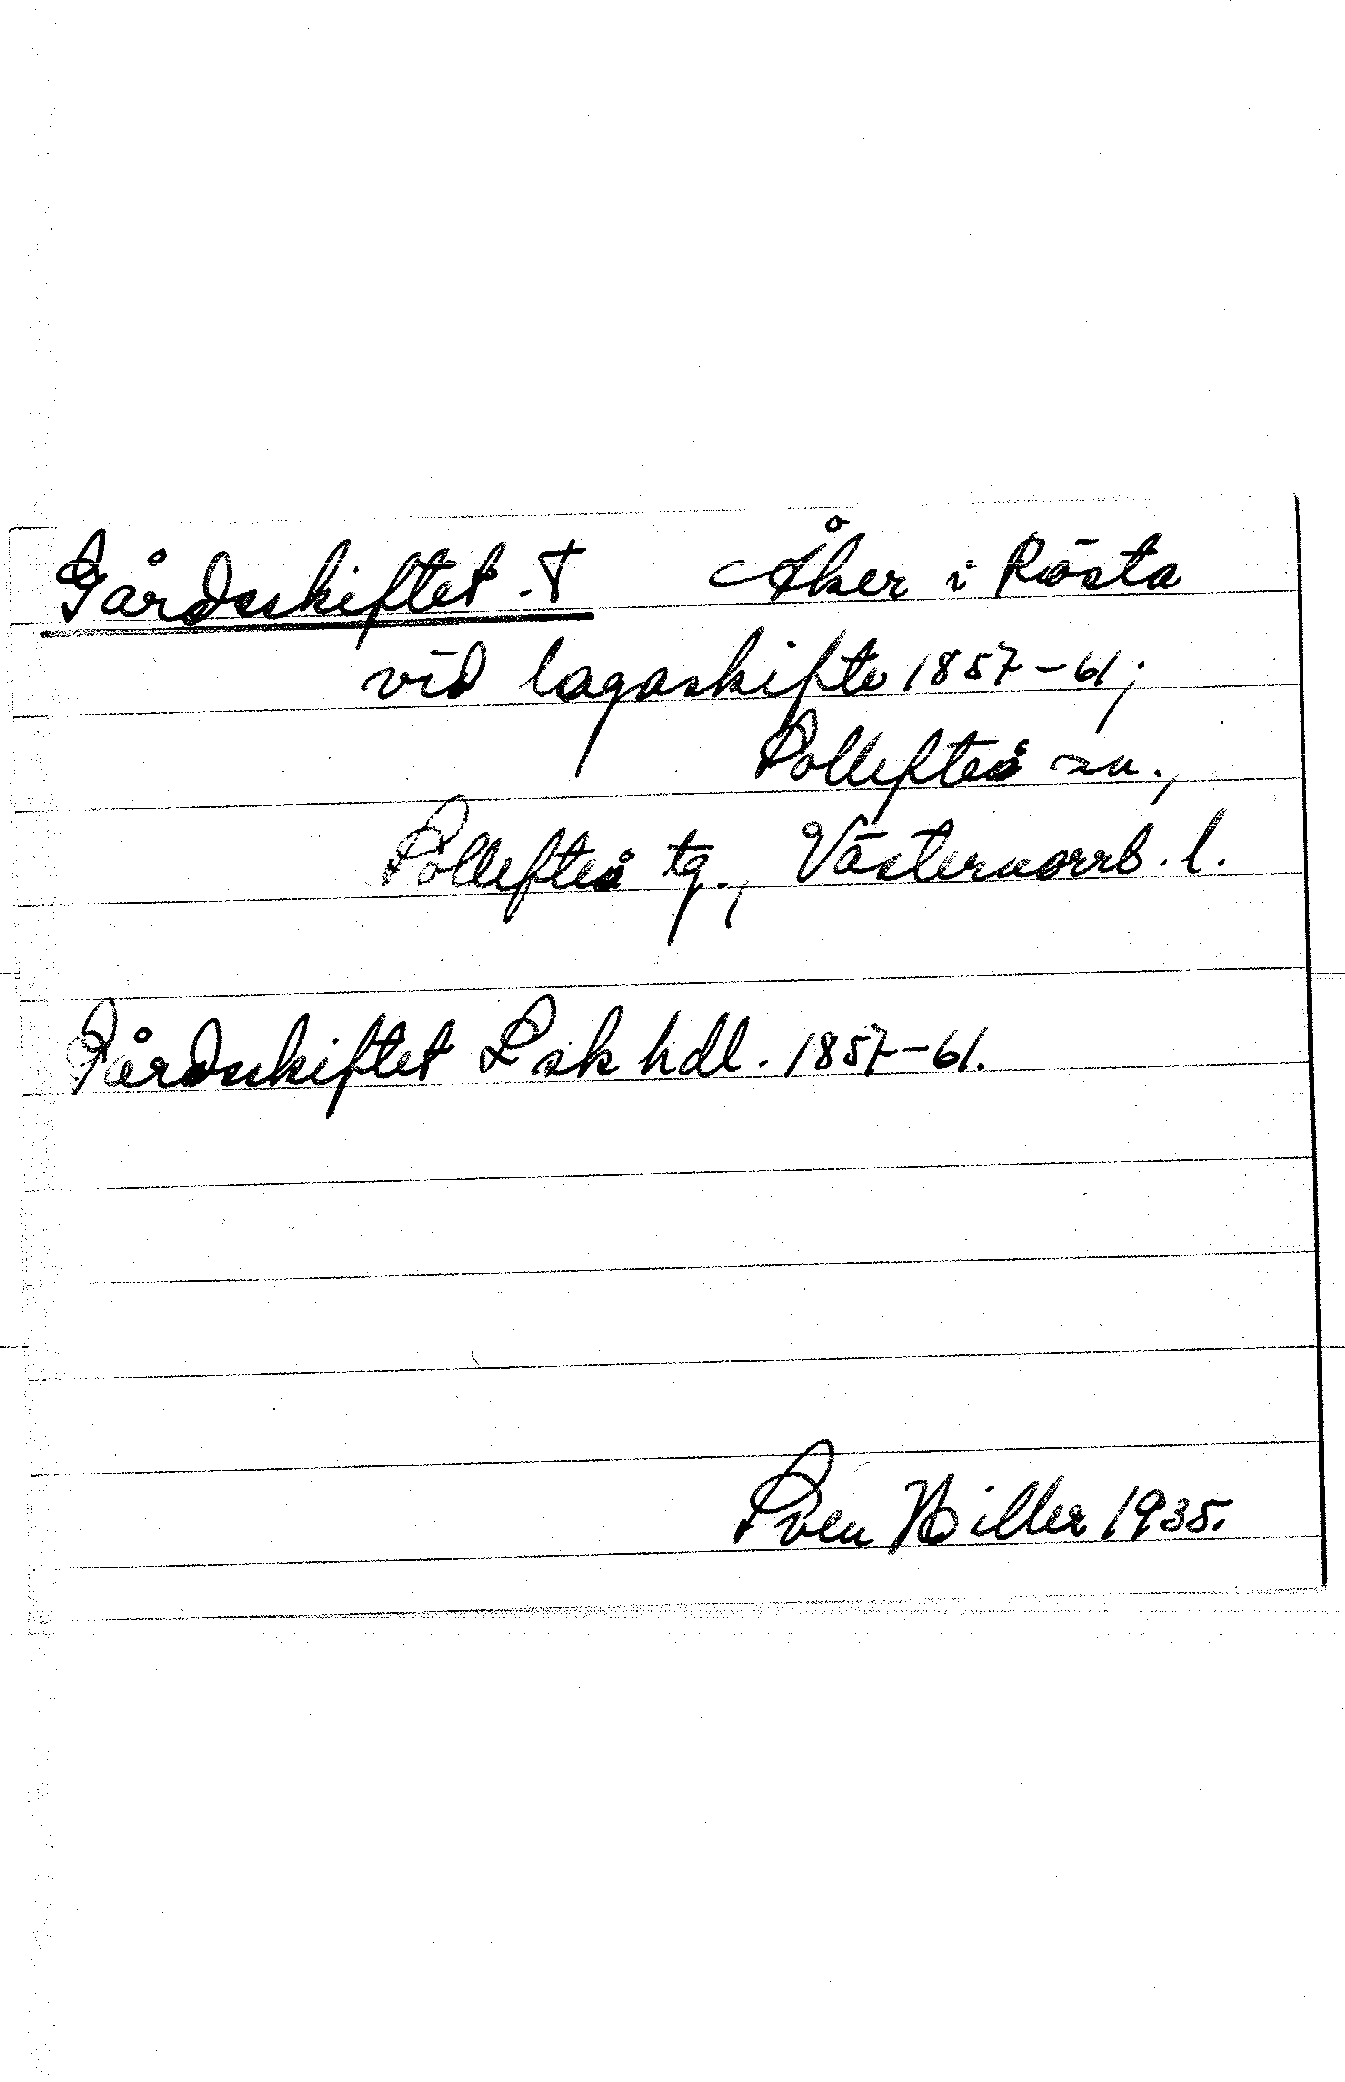 Gårdsskiftet. † Åker i Rösta
vid lagaskifte 1857-61;
Sollefteå sn.,
Sollefteå tg., Västernorrl. l.
Gårdsskiftet Lsk hdl. 1857-61.
Sven Hiller 1935.